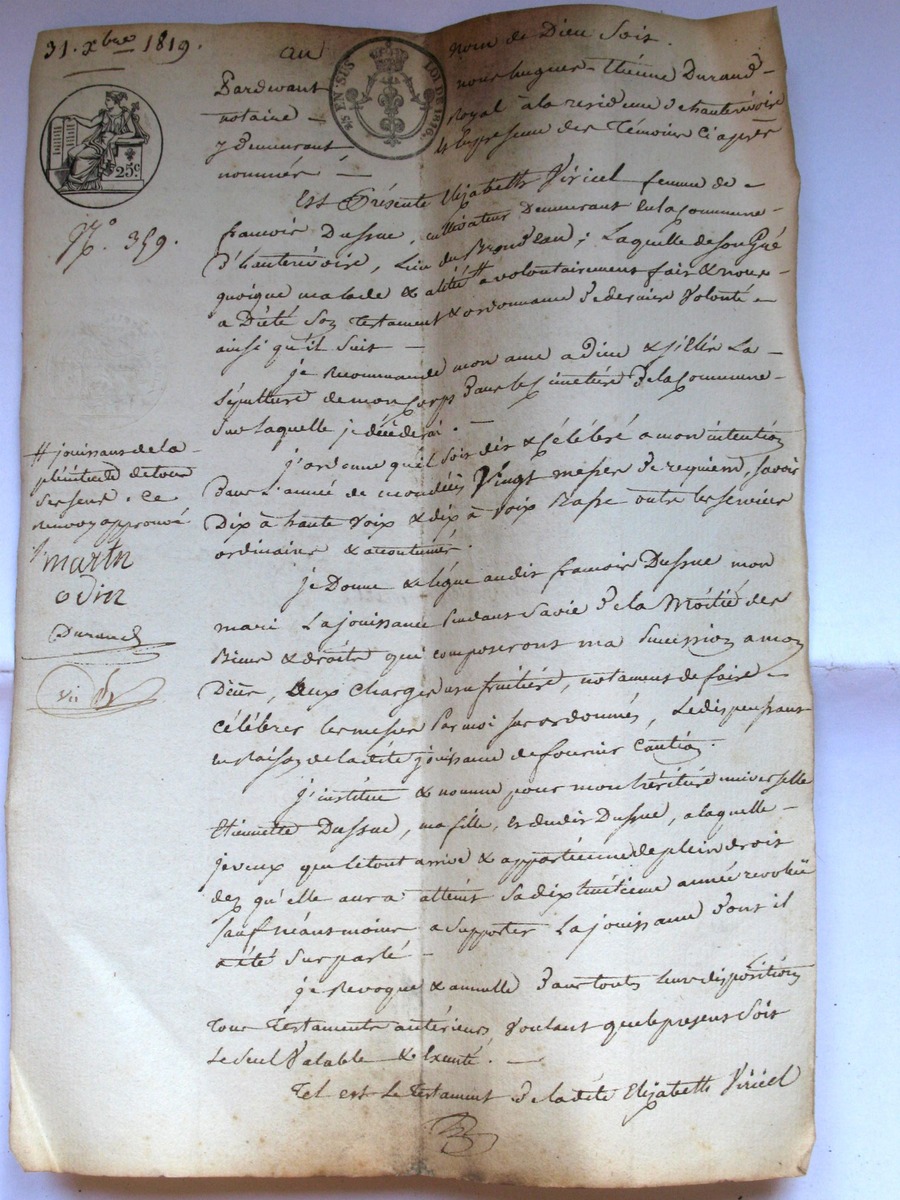 31. xbre 1819.
25c
No. 359.
5S EN SUS LOI DE 1816.
au nom de Dieu soit.
Pardevant nous hugues-Etienne Durand-
notaire - Royal a la residence d'hauterivoire
y Demeurant & en presence des Témoins ci après
nommés -
Est Présente Elizabeth Viricel femme de -
francois Dussue, cultivateur Demeurant en la Commune -
d'hauterivoire, Lieu du ; Laquelle de son Gré
quoique malade & alitée # a volontairement fait & nous -
a Dicté son Testament & ordonnance de derniere Volonté -
ainsi qu'il suit -
je Recommande mon ame a Dieu & j'élis La -
sépulture de mon Corps dans le Cimetière de la Commune -
sur laquelle je décéderai. -
j'ordonne qu'il soit dit & Célébré a mon intention
dans L'année de mon décès Vingt messes de requiem, savoir
Dix à haute Voix & dix à Voix Basse outre les services
ordinaires & accoutumés.
je Donne & légue audit francois Dussue mon
mari La jouissance Pendant sa vie de la Moitié des
Biens & droits qui composeront ma succession a mon
Décès, aux charges usufruitière, notament de faire -
célébrer les messes Par moi sus ordonnées, Le dispensant
en Raison de ladite jouissance de fournir Caution.
j'institue & nomme pour mon héritière universelle
Etiennette Dussue, ma fille, & dudit Dussue, a laquelle -
je veux que le tout arrive & appartienne de plein droit
dez qu'elle aura atteint sa dix huitieme année revolue
sauf néantmoins a supporter La jouissance dont il
a été sus parlé -
je Revoque & annulle dans toutes leurs dispositions
tous Testaments antérieurs voulant que le present soit
le seul Valable & Exécuté. -
Tel est le Testament de ladite Elizabeth Viricel
# jouissant de la -
plénitude de tous
ses sens. ce
renvoy approuvé
martin
odin
Durand